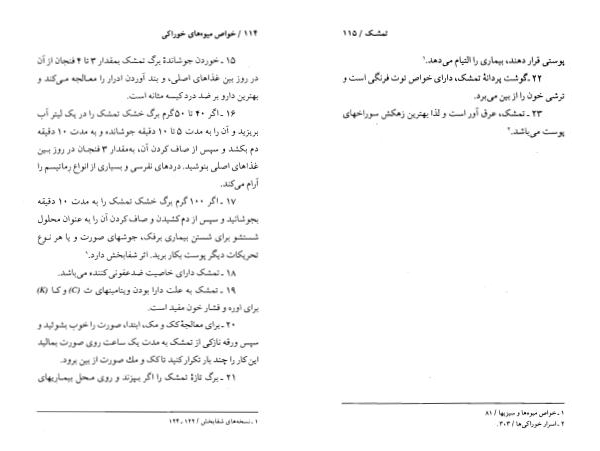 ۱۱۴ / خواص میوه‌های خوراکی
۱۵ ـ خوردن جوشاندهٔ برگ تمشک بمقدار ۳ تا ۴ فنجان از آن
در روز بین غذاهای اصلی، و بند آوردن ادرار را معالجه می‌کند و
بهترین دارو بر ضد درد کیسه مثانه است.
۱۶ ـ اگر ۴۰ تا ۵۰ گرم برگ خشک تمشک را در یک لیتر آب
بریزید و آن را به مدت ۵ تا ۱۰ دقیقه جوشانده و به مدت ۱۰ دقیقه
دم بکشد و سپس از صاف کردن آن، به‌مقدار ۳ فنجان در روز بین
غذاهای اصلی بنوشید. دردهای نفرسی و بسیاری از انواع رماتیسم را
آرام می‌کند.
۱۷ ـ اگر ۱۰۰ گرم برگ خشک تمشک را به مدت ۱۰ دقیقه
بجوشانید و سپس از دم کشیدن و صاف کردن آن را به عنوان محلول
شستشو برای شستن بیماری برفک، جوشهای صورت و یا هر نوع
تحریکات دیگر پوست بکار برید. اثر شفابخش دارد.۱
۱۸ ـ تمشک دارای خاصیت ضدعفونی کننده می‌باشد.
۱۹ ـ تمشک به علت دارا بودن ویتامینهای ث (C) و کا (K)
برای اوره و فشار خون مفید است.
۲۰ ـ برای معالجهٔ کک و مک، ابتدا، صورت را خوب بشوئید و
سپس ورقه نازکی از تمشک به مدت یک ساعت روی صورت بمالید
این کار را چند بار تکرار کنید تا کک و مک صورت از بین برود.
۲۱ ـ برگ تازهٔ تمشک را اگر بپزند و روی محل بیماریهای
۱ ـ نسخه‌های شفابخش / ۱۲۲ ـ ۱۲۴
تمشک / ۱۱۵
پوستی قرار دهند، بیماری را التیام می‌دهد.۱
۲۲ ـ گوشت پردانهٔ تمشک، دارای خواص توت فرنگی است و
ترشی خون را از بین می‌برد.
۲۳ ـ تمشک، عرق آور است و لذا بهترین زهکش سوراخهای
پوست می‌باشد.۲
۱ ـ خواص میوه‌ها و سبزیها / ۸۱
۲ ـ اسرار خوراکی‌ها / ۳۰۳.